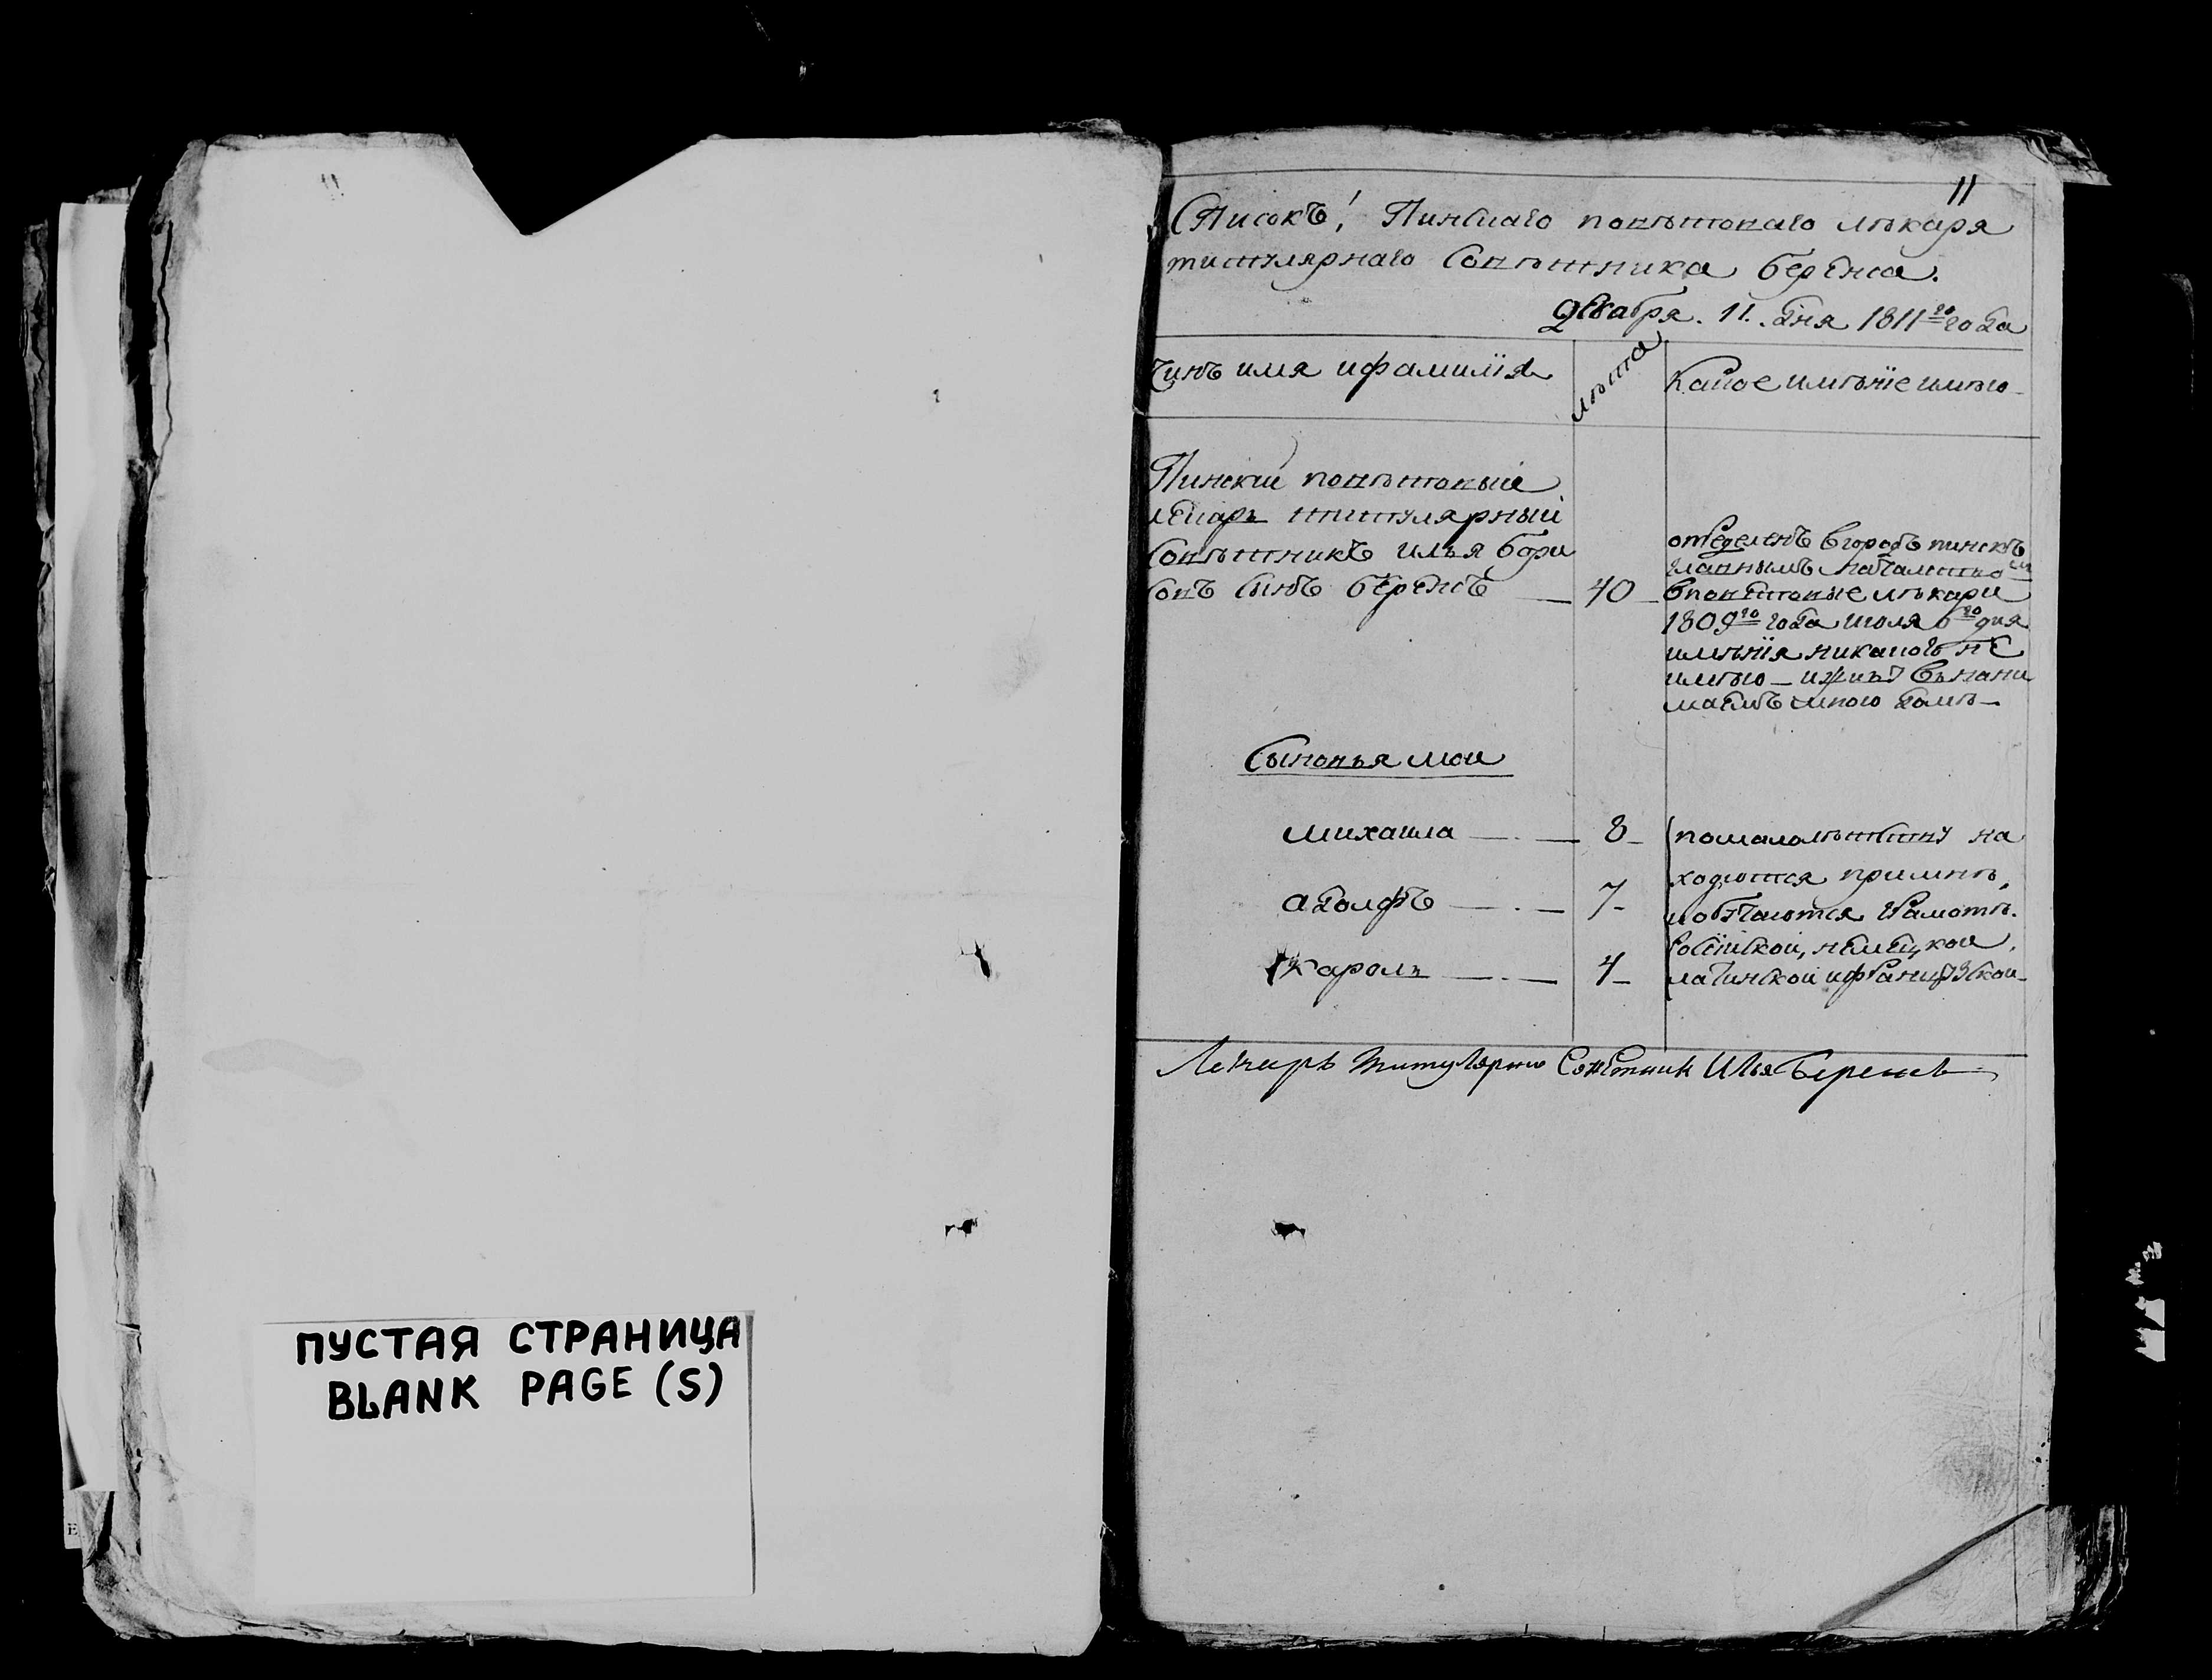 ПУСТАЯ СТРАНИЦА
BLANK PAGE (S)
11
Списокъ! Пинскаго повѣтоваго лѣкаря
титулярнаго Совѣтника беренса.
Декабря. 11. дня 1811го года
Чинъ имя ифамилїя
лѣта
Какое имѣнїе имѣю
Пински повѣтовыи
лекарь титулярныи
Совѣтникъ илья бори
совъ сынъ беренсъ 40
определенъ вгородъ пинскъ
главнымъ началством
вповетовые лѣкари
1809го года июля 6го дня
имѣнїя никакогъ не
имѣю — иживу внани
маемъ мною домѣ —
Сыновья мои
михаила — 8
адолфъ — 7
кароль — 4
помалолѣтству на
ходютса примнѣ,
иобучаются грамотѣ.
росїискои, немецкои,
латинскои ифранцузкои
Лекарь титулярно Советник Илья Беренсъ